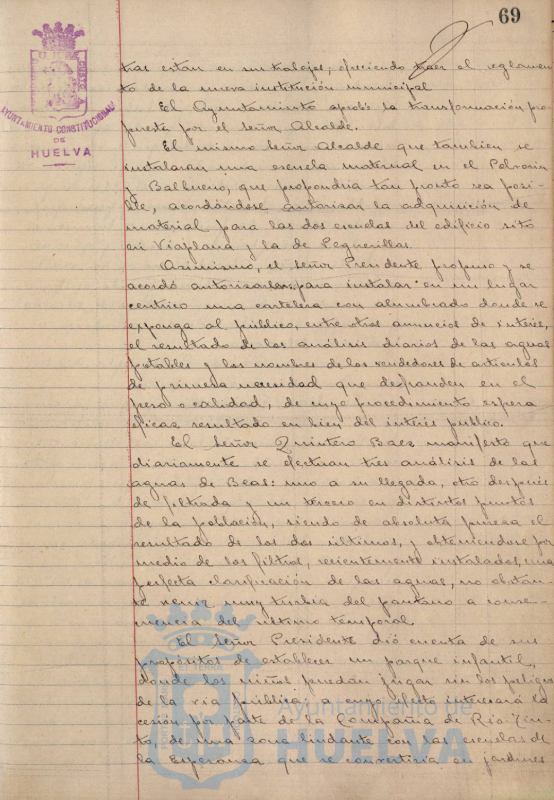 69
AYUNTAMIENTO CONSTITUCIONAL
DE
HUELVA
tras estan en sus trabajos, ofreciendo traer el reglamen-
to de la nueva institución municipal
El Ayuntamiento aprobó la transformación pro-
puesta por el Señor Alcalde.
El mismo Señor Alcalde que tambien se
instalaran una escuela maternal en el Polvorin
y Balbueno, que propondria tán pronto sea posi-
ble, acordándose autorizar la adquisición de
material para las dos escuelas del edificio sito
en Viaplana y la de Pequeñillos.
Asimismo, el Señor Presidente propuso y se
acordó autorizarle, para instalar en un lugar
centrico una cartelera con alumbrado donde se
exponga al público, entre otros anuncios de interés,
el resultado de los análisis diarios de las aguas
potables y los nombres de los vendedores de articulos
de primera necesidad que defrauden en el
peso o calidad, de cuyo procedimiento espera
eficaz resultado en bien del interés publico.
El Señor Quintero Baez manifestó que
diariamente se efectuan tres análisis de las
aguas de Beas: uno a su llegada, otro después
de filtrada y un tercero en distintos puntos
de la población, siendo de absoluta pureza el
resultado de los dos últimos, y obteniendose por
medio de los filtros, recientemente instalados, una
perfecta clarificación de las aguas, no obstan-
te venir muy turbia del pantano a conse-
cuencia del último temporal.
El Señor Presidente dió cuenta de sus
propósitos de establecer un parque infantil,
donde los niños puedan jugar sin los peligros
de la via pública, a cuyo efecto interesará la
cesión por parte de la Compañia de Rio-Tin-
to, de una zona lindante con las escuelas de
la Esperanza que se convertiria en jardines
Ayuntamiento de
HUELVA